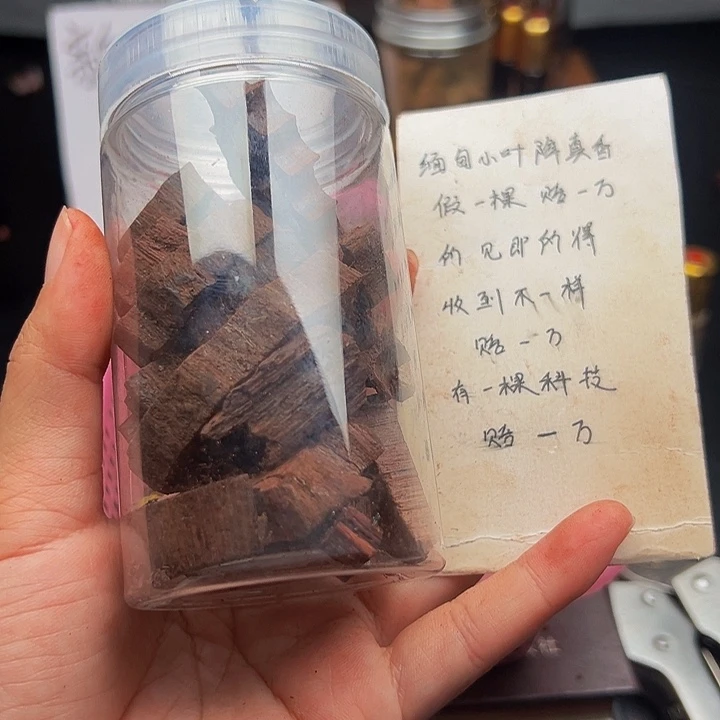 缅甸小叶降真香
假一棵赔一万
的见即的得
收到不一样
赔一万
有一棵科技
赔一万